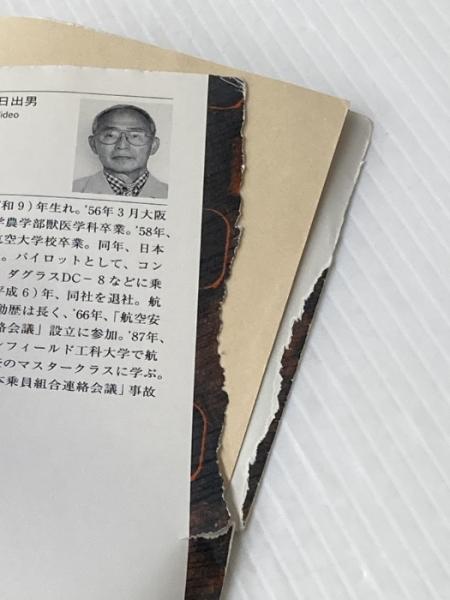 日出男
ideo
和9）年生れ。'56年3月大阪
学農学部獣医学科卒業。'58年、
航空大学校卒業。同年、日本
。パイロットとして、コン
ダグラスDC－8などに乗
平成6）年、同社を退社。航
動歴は長く、'66年、「航空安
絡会議」設立に参加。'87年、
ンフィールド工科大学で航
査のマスタークラスに学ぶ。
本乗員組合連絡会議」事故